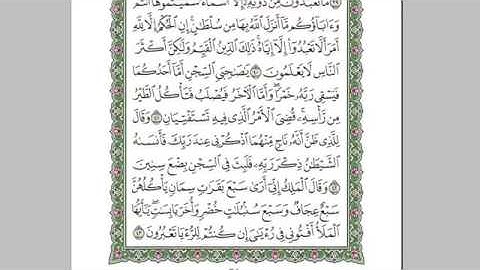 مَا تَعْبُدُونَ مِن دُونِهِۦٓ إِلَّآ أَسْمَآءً سَمَّيْتُمُوهَآ أَنتُمْ
وَءَابَآؤُكُم مَّآ أَنزَلَ ٱللَّهُ بِهَا مِن سُلْطَٰنٍ ۚ إِنِ ٱلْحُكْمُ إِلَّا لِلَّهِ
أَمَرَ أَلَّا تَعْبُدُوٓا۟ إِلَّآ إِيَّاهُ ۚ ذَٰلِكَ ٱلدِّينُ ٱلْقَيِّمُ وَلَٰكِنَّ أَكْثَرَ
ٱلنَّاسِ لَا يَعْلَمُونَ ٤٠ يَٰصَىٰحِبَىِ ٱلسِّجْنِ أَمَّآ أَحَدُكُمَا
فَيَسْقِى رَبَّهُۥ خَمْرًا ۖ وَأَمَّا ٱلْءَاخَرُ فَيُصْلَبُ فَتَأْكُلُ ٱلطَّيْرُ
مِن رَّأْسِهِۦ ۚ قُضِىَ ٱلْأَمْرُ ٱلَّذِى فِيهِ تَسْتَفْتِيَانِ ٤١ وَقَالَ
لِلَّذِى ظَنَّ أَنَّهُۥ نَاجٍ مِّنْهُمَا ٱذْكُرْنِى عِندَ رَبِّكَ فَأَنسَىٰهُ
ٱلشَّيْطَٰنُ ذِكْرَ رَبِّهِۦ فَلَبِثَ فِى ٱلسِّجْنِ بِضْعَ سِنِينَ
٤٢ وَقَالَ ٱلْمَلِكُ إِنِّىٓ أَرَىٰ سَبْعَ بَقَرَٰتٍ سِمَانٍ يَأْكُلُهُنَّ
سَبْعٌ عِجَافٌ وَسَبْعَ سُنۢبُلَٰتٍ خُضْرٍ وَأُخَرَ يَابِسَٰتٍ ۖ يَٰٓأَيُّهَا
ٱلْمَلَأُ أَفْتُونِى فِى رُءْيَٰىَ إِن كُنتُمْ لِلرُّءْيَا تَعْبُرُونَ ٤٣